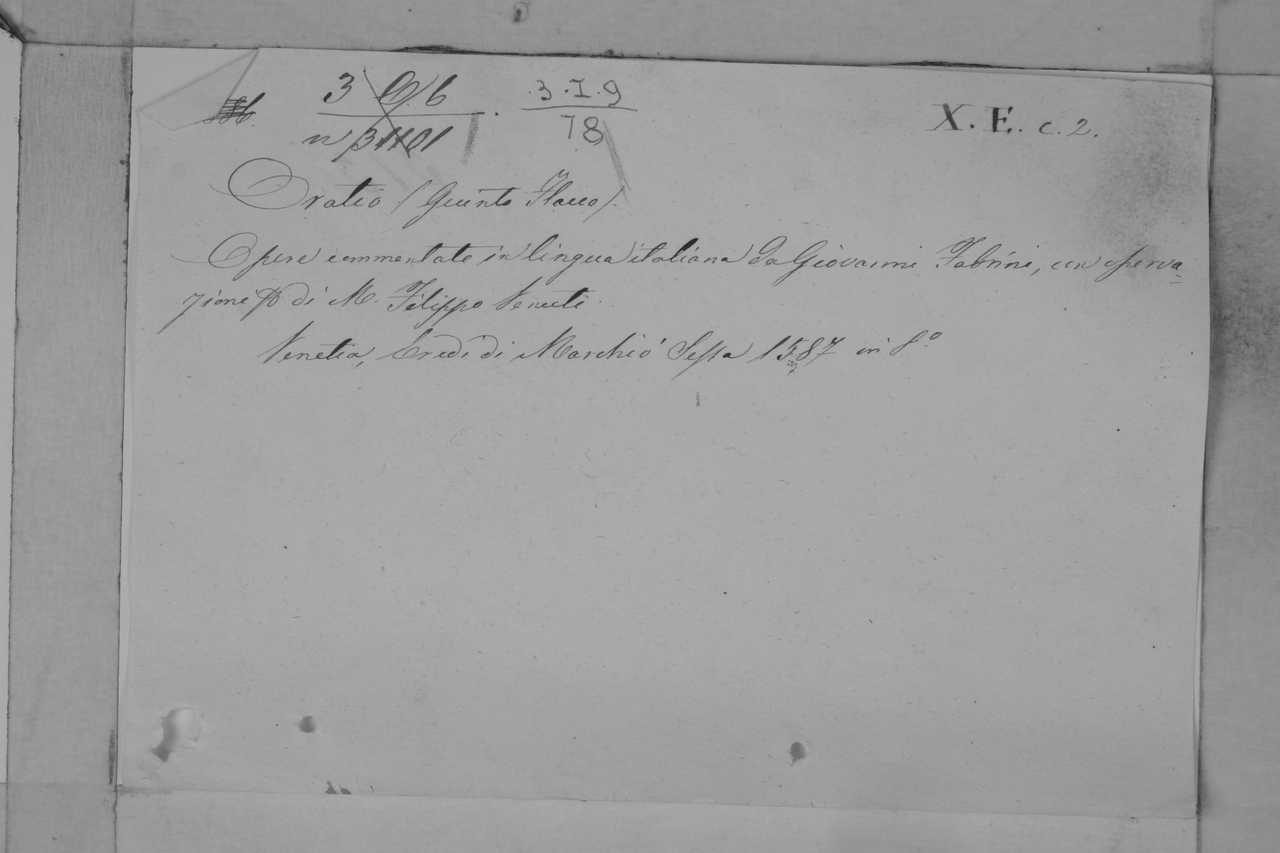 3 G 6 . 3.I.9 X.E. c.2.
n 31101 78
Oratio (Quinto Flacco).
Opere commentate in lingua italiana da Giovanni Fabrini, con osserva-
zione di M. Filippo Venuti.
Venetia, Eredi di Marchiò Sessa 1587 in 8.°